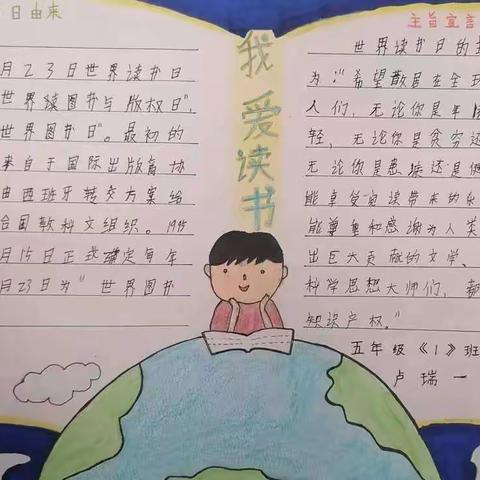 日由来
月23日世界读书日
世界读图书与版权日",
世界图书日"。最初的
来自于国际出版商协
由西班牙转交方案给
合国教科文组织。1995
月15日正式确定每年
月23日为"世界图书
我爱读书
主旨宣言
世界读书日的主
为:"希望散居在全球
人们,无论你是年老
轻,无论你是贫穷还
无论你是患病还是健
能享受阅读带来的乐
能尊重和感谢为人类
出巨大贡献的文学、
科学思想大师们,都
知识产权。"
五年级《1》班
卢瑞一